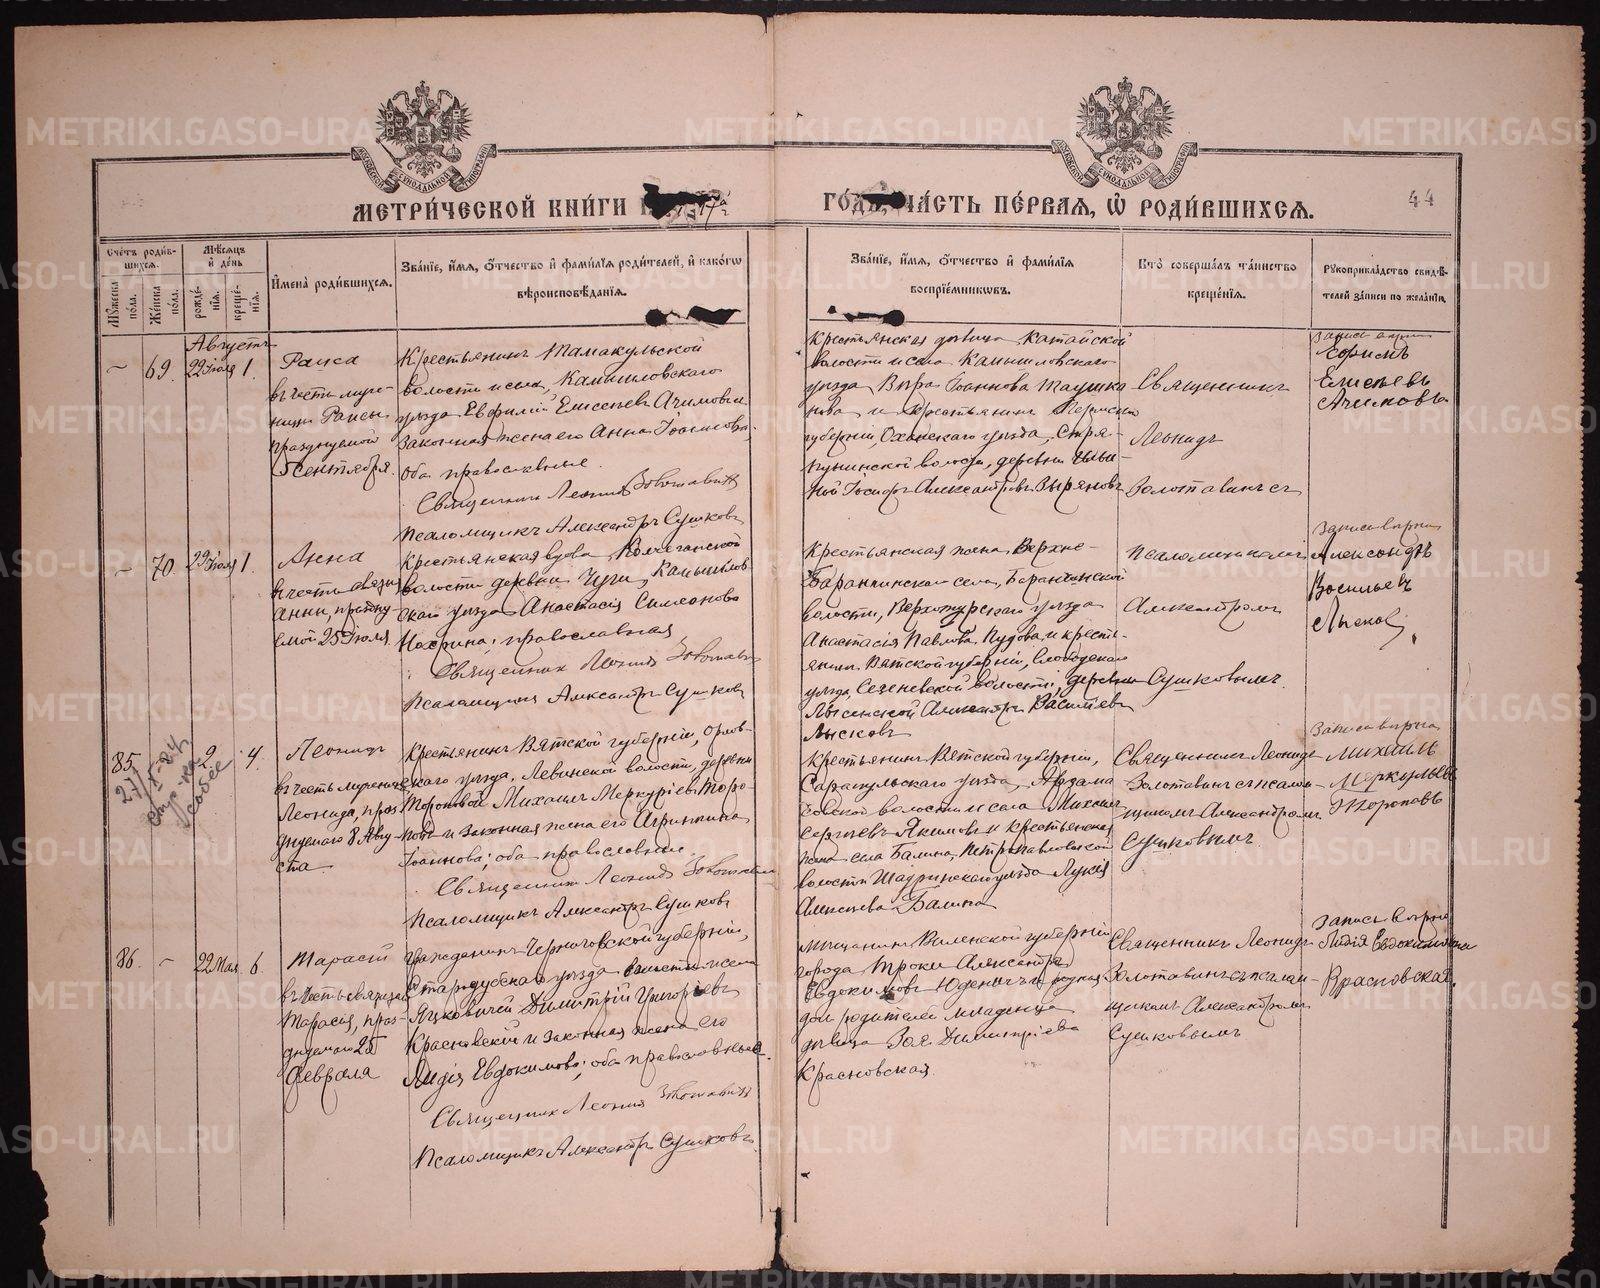 МЕТРИ́ЧЕСКОЙ КНИ́ГИ
ГО́ДЪ, ЧА́СТЬ ПЕ́РВАЯ, Ѡ РОДИ́ВШИХСЯ.
44
Сче́тъ роди́в-
шихся.
Мѣ́сяцъ
и де́нь
Му́жеска
по́ла.
Же́нска
по́ла.
рожде́-
нїя.
креще́-
нїя.
Имена̀ роди́вшихся.
Зва́нїе, и́мя, ѻ́тчество и фами́лїя роди́телей, и како́гѡ
вѣроисповѣ́данїя.
Зва́нїе, и́мя, ѻ́тчество и фами́лїя
воспрїе́мникѡвъ.
Кто̀ соверша́лъ та́инство
креще́нїя.
Рукоприкла́дство свидѣ́-
телей за́писи по жела́нїю.
Августъ
– 69. 29 Іюля 1.
Раиса
въ честь муче-
ницы Раисы
празднуемой
5 Сентября.
Крестьянинъ Тамакульской
волости и села, Камышловскаго
уѣзда Евфимій Елисеевъ Ачимовъ и
законная жена его Анна Іоаннова,
оба православные.
Священникъ Леонидъ Золотавинъ
Псаломщикъ Александръ Сушковъ
Крестьянская дѣвица Катайской
волости и села Камышловскаго
уѣзда Вѣра Іоаннова Таушка
нова и крестьянинъ Пермской
губерніи, Оханскаго уѣзда, Стря-
пунинской волости, деревни
Іосифъ Александровъ Зыряновъ
Священникъ
Леонидъ
Золотавинъ съ
Ефимъ
Елисѣевъ
Ачимовъ
– 70. 29 Іюля 1.
Анна
въ честь
Анны, празну
емой 25 Іюля
Крестьянская вдова Колчеганской
волости деревни Чуги, Камышлов
скаго уѣзда Анастасія Симеонова
православная
Священник Леонид Золотавин
Псаломщикъ Александръ Сушковъ
Крестьянская жена Верхне-
Баранчинскаго села, Баранчинской
волости, Верхотурскаго уѣзда
Анастасія Павлова Пудова, и кресть-
янинъ Вятской губерніи, Слободскаго
уѣзда, Сезеневской волости, деревни
Лысенской Александръ Васильевъ
Лысковъ
псаломщикомъ
Александромъ
Сушковымъ.
Запись вѣрна
Александъ
Васильевъ
Лысков
85. 2 4.
27/V-24
Леонидъ
въ честь мученика
Леонида, праз
днуемаго 8 Авгу-
ста.
Крестьянинъ Вятской губерніи, Орлов-
скаго уѣзда, Левинской волости, деревни
Тороповой Михаилъ Меркуріевъ Торо-
повъ и законная жена его Агрипина
Іоаннова; оба православные.
Священникъ Леонидъ Золотавин
Псаломщикъ Александръ Сушковъ
Крестьянинъ Вятской губерніи,
Сарапульскаго уѣзда, Арзама
совской волости и села Михаил
Сергѣевъ Якимовъ и крестьянская
жена села Балина, Петропавловской
волости Шадринскаго уѣзда Лукія
Алексѣева Балина
Священникъ Леонидъ
Золотавинъ съ псалом-
щикомъ Александромъ
Сушковымъ
Запись вѣрна
Михаилъ
Меркульевъ
Тороповъ
86. – 22 Мая 6.
Тарасій
въ честь святаго
Тарасія, праз-
днуемаго 25
Февраля
Гражданинъ Черниговской губерніи,
Стародубскаго уѣзда волости и села
Яцковичей Димитрій Григоріевъ
Красновскій и законная жена его
Лидія Евдокимова; оба православные.
Священникъ Леонид Золотавин
Псаломщикъ Александръ Сушковъ
Мѣщанинъ Виленской губерніи
города Троки Александръ
Евдокимовъ Юденичъ и родная
дочь родителей младенца
дѣвица Зоя Димитріева
Красновская.
Священникъ Леонидъ
Золотавинъ съ псалом-
щикомъ Александромъ
Сушковымъ
Запись вѣрна
Лидія Евдокимовна
Красновская.